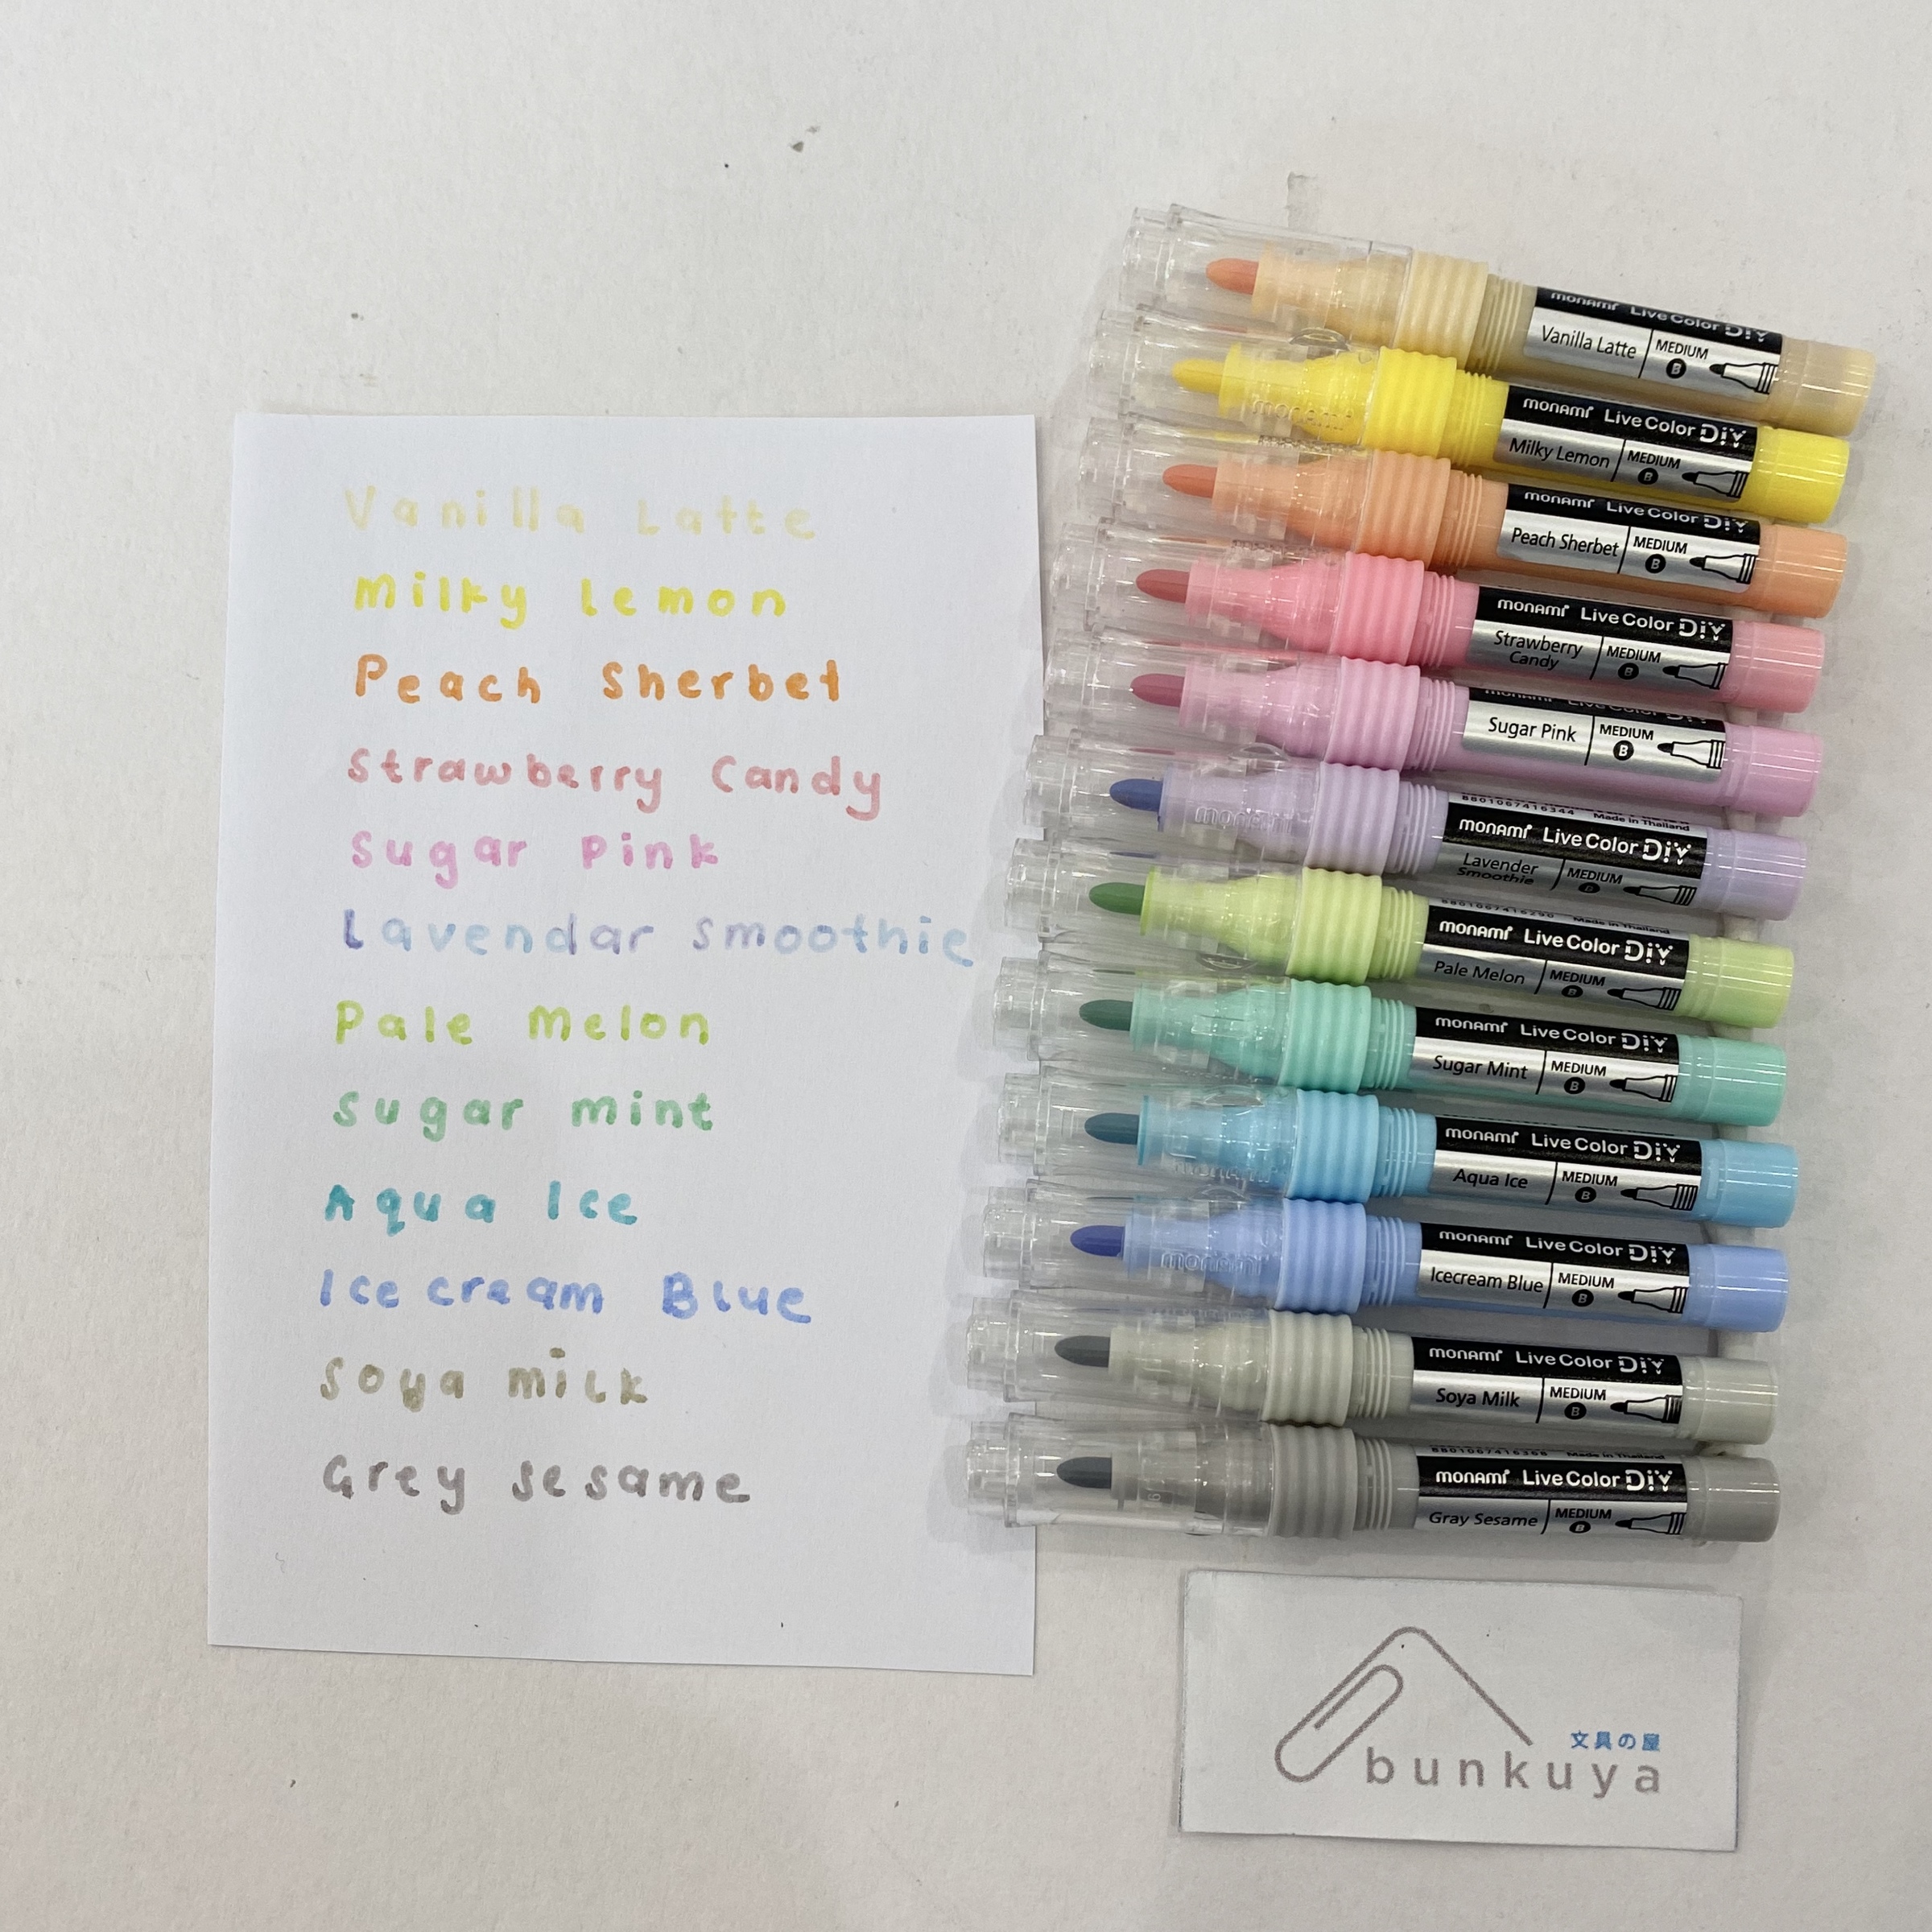 Vanilla Latte
Milky Lemon
Peach Sherbet
Strawberry Candy
Sugar Pink
Lavendar Smoothie
Pale Melon
Sugar mint
Aqua Ice
Ice cream Blue
Soya milk
Grey Sesame
monami Live Color DIY
Vanilla Latte MEDIUM B
monami Live Color DIY
Milky Lemon MEDIUM B
monami Live Color DIY
Peach Sherbet MEDIUM B
monami Live Color DIY
Strawberry
Candy MEDIUM B
monami Live Color DIY
Sugar Pink MEDIUM B
8801067416344 Made in Thailand
monami Live Color DIY
Lavender
Smoothie MEDIUM B
Made in Thailand
monami Live Color DIY
Pale Melon MEDIUM B
monami Live Color DIY
Sugar Mint MEDIUM B
monami Live Color DIY
Aqua Ice MEDIUM B
monami Live Color DIY
Icecream Blue MEDIUM B
monami Live Color DIY
Soya Milk MEDIUM B
Made in Thailand
monami Live Color DIY
Gray Sesame MEDIUM B
文具の屋
bunkuya